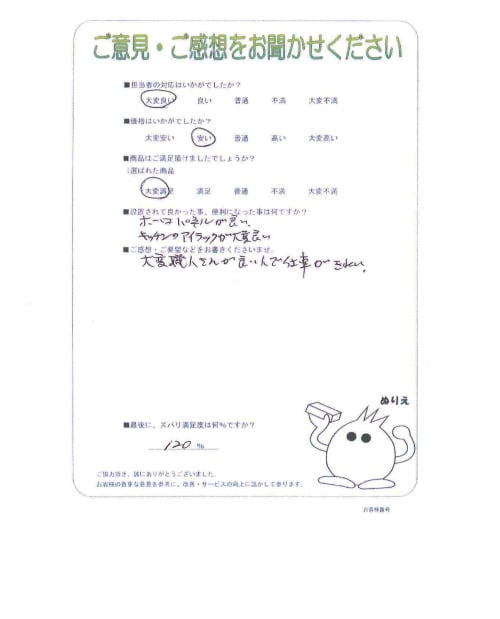 ご意見・ご感想をお聞かせください
■担当者の対応はいかがでしたか？
大変良い 良い 普通 不満 大変不満
■価格はいかがでしたか？
大変安い 安い 普通 高い 大変高い
■商品はご満足頂けましたでしょうか？
（選ばれた商品
大変満足 満足 普通 不満 大変不満
■設置されて良かった事、便利になった事は何ですか？
ホーローパネルが良い、
キッチンのアイラックが大変良い
■ご感想・ご要望などをお書きくださいませ。
大変職人さんが良い人で仕事がきれい。
ぬりえ
■最後に、ズバリ満足度は何％ですか？
120 %
ご協力頂き、誠にありがとうございました。
お客様の貴重な意見を参考に、改善・サービスの向上に活かして参ります。
お客様番号